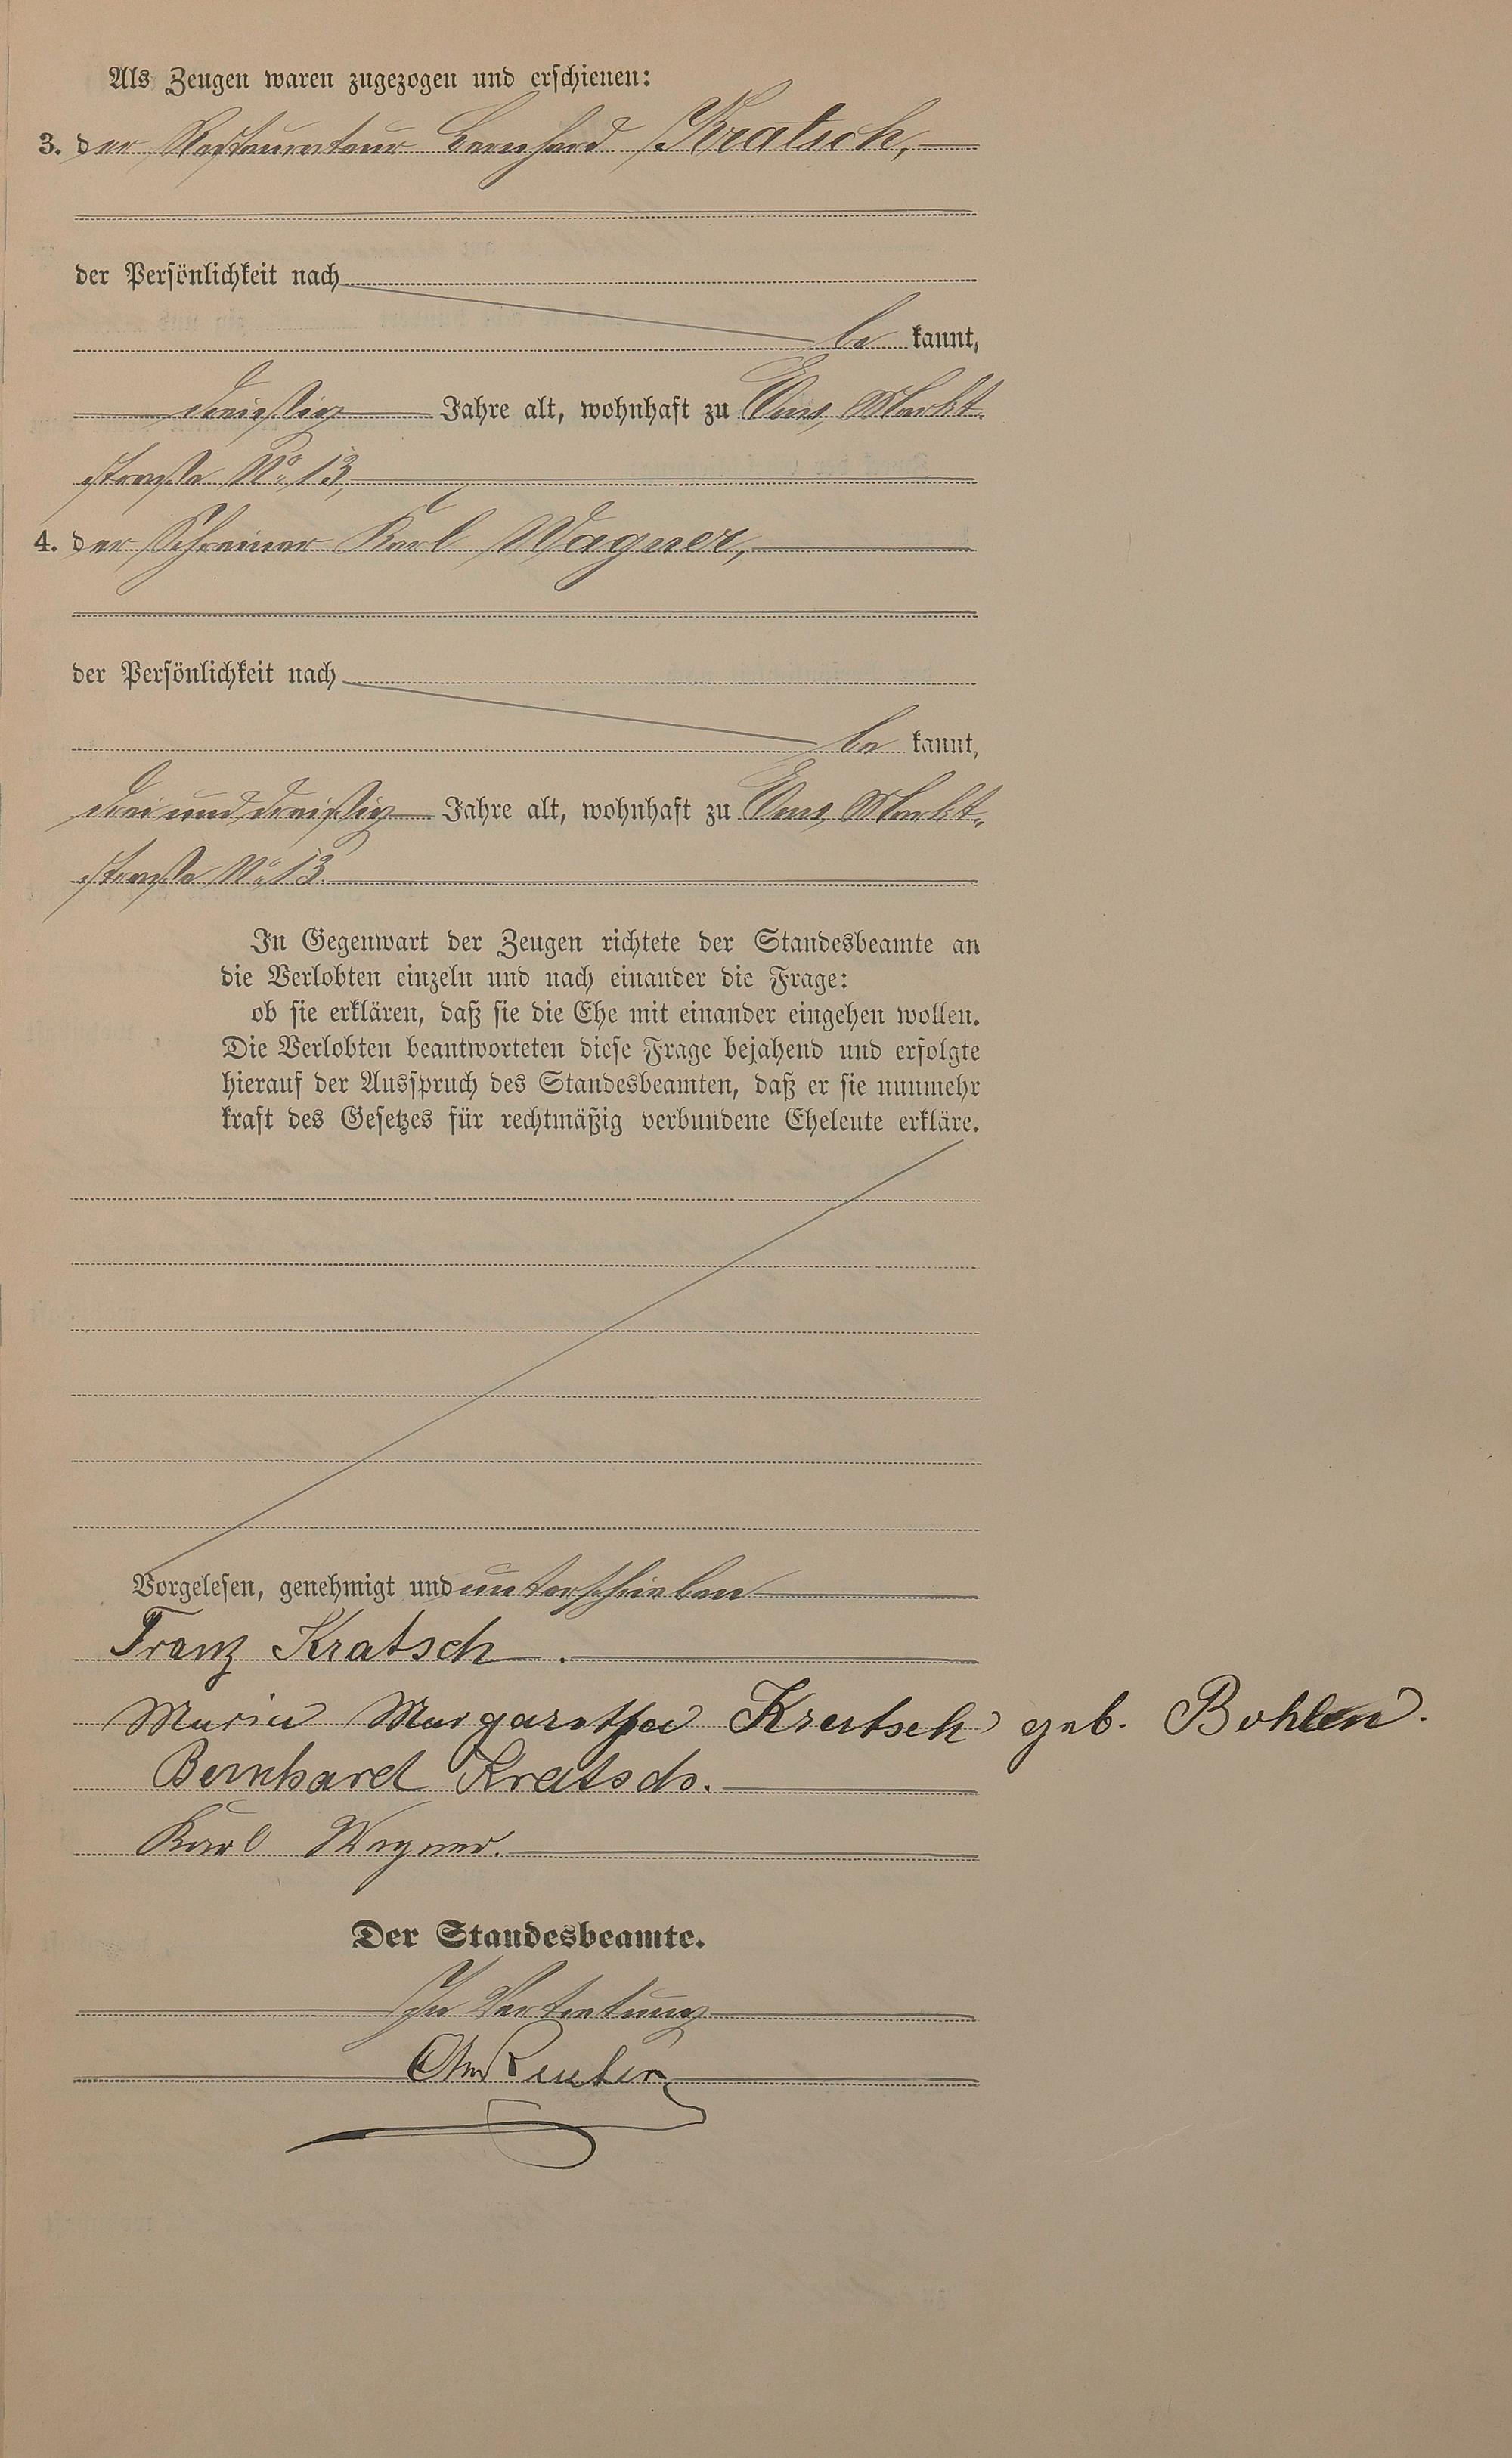 Als Zeugen waren zugezogen und erschienen:
3. der Restaurateur Bernhard Kratsch,
der Persönlichkeit nach
be kannt,
dreißig Jahre alt, wohnhaft zu Ems, Markt-
straße No 13,
4. der Schreiner Karl Wagner,
der Persönlichkeit nach
be kannt,
drei und dreißig Jahre alt, wohnhaft zu Ems, Markt-
straße No 13.
In Gegenwart der Zeugen richtete der Standesbeamte an
die Verlobten einzeln und nach einander die Frage:
ob sie erklären, daß sie die Ehe mit einander eingehen wollen.
Die Verlobten beantworteten diese Frage bejahend und erfolgte
hierauf der Ausspruch des Standesbeamten, daß er sie nunmehr
kraft des Gesetzes für rechtmäßig verbundene Eheleute erkläre.
Vorgelesen, genehmigt und unterschrieben
Franz Kratsch.
Maria Margaretha Kratsch geb. Bohlen.
Bernhard Kratsch.
Karl Wagner.
Der Standesbeamte.
In Vertretung
Reuter